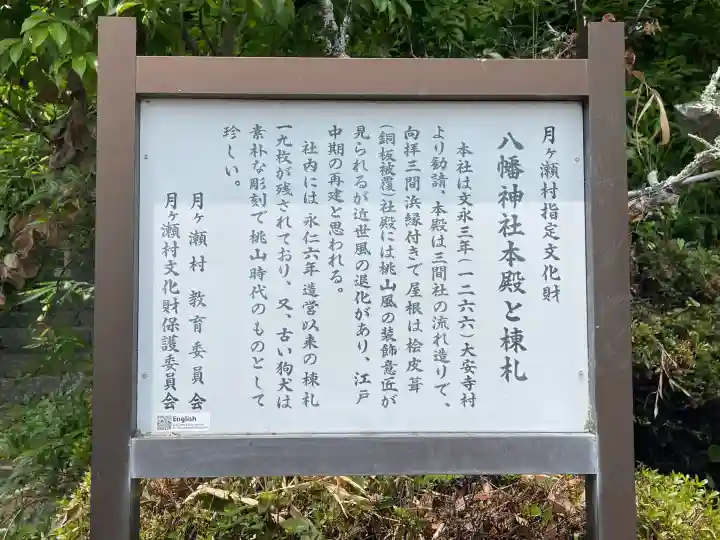 月ヶ瀬村指定文化財
八幡神社本殿と棟札
本社は文永三年(一二六六)大安寺村
より勧請、本殿は三間社の流れ造りで、
向拝三間浜縁付きで屋根は桧皮葺
(銅板被覆)社殿には桃山風の装飾意匠が
見られるが近世風の退化があり、江戸
中期の再建と思われる。
社内には永仁六年造営以来の棟札
一九枚が残されており、又、古い狗犬は
素朴な彫刻で桃山時代のものとして
珍しい。
月ヶ瀬村教育委員会
月ヶ瀬村文化財保護委員会
English